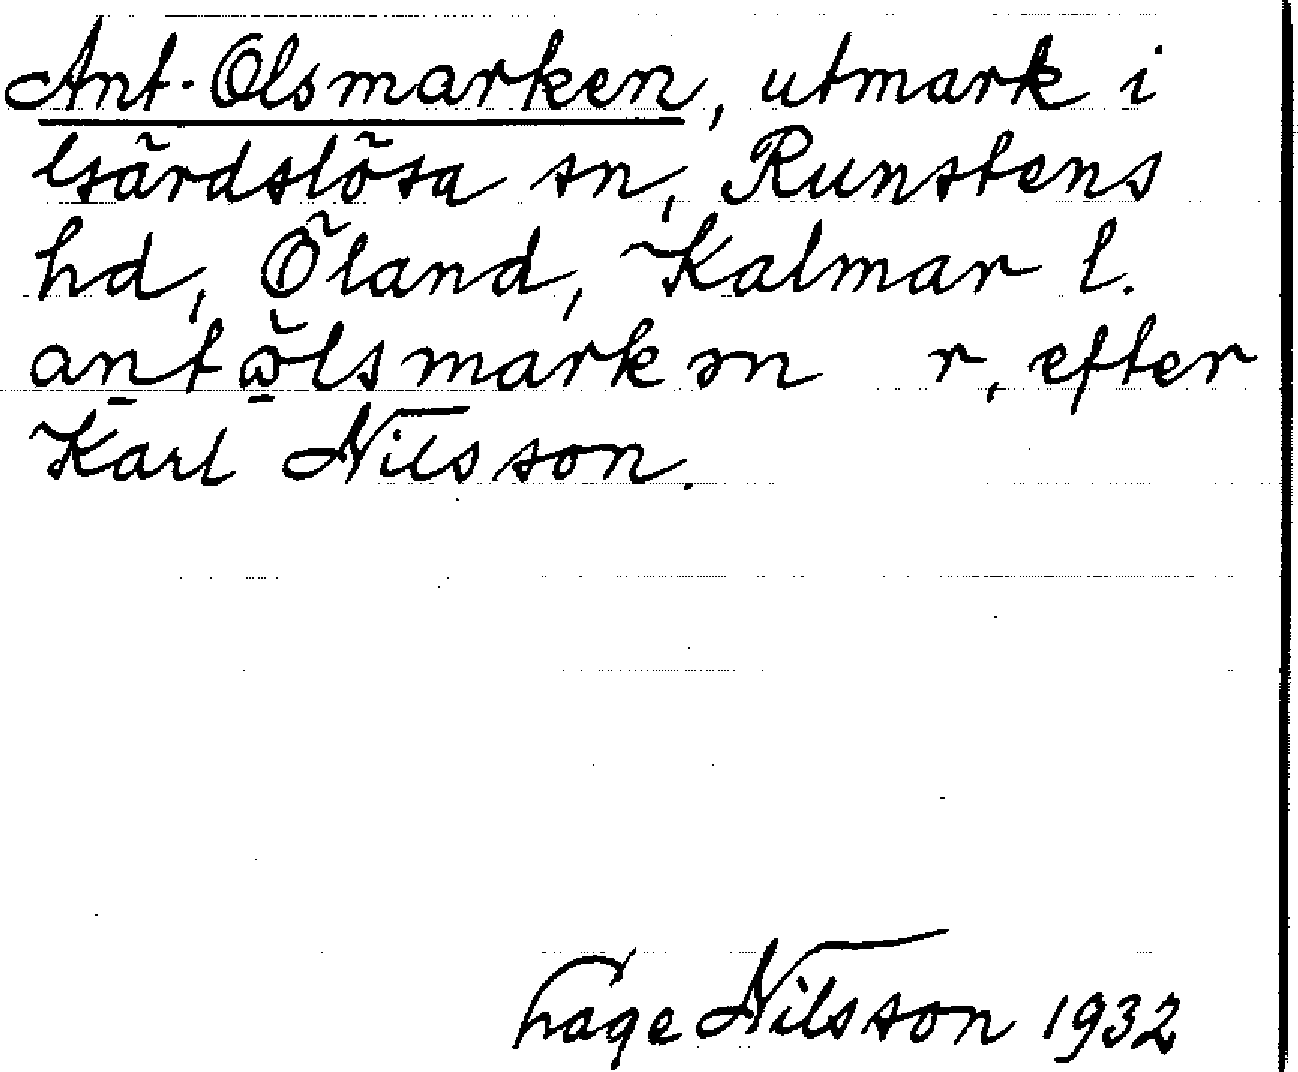 Ant-Olsmarken, utmark i
Gärdslösa sn, Runstens
hd, Öland, Kalmar l.
r, efter
Karl Nilsson.
Hage Nilsson 1932